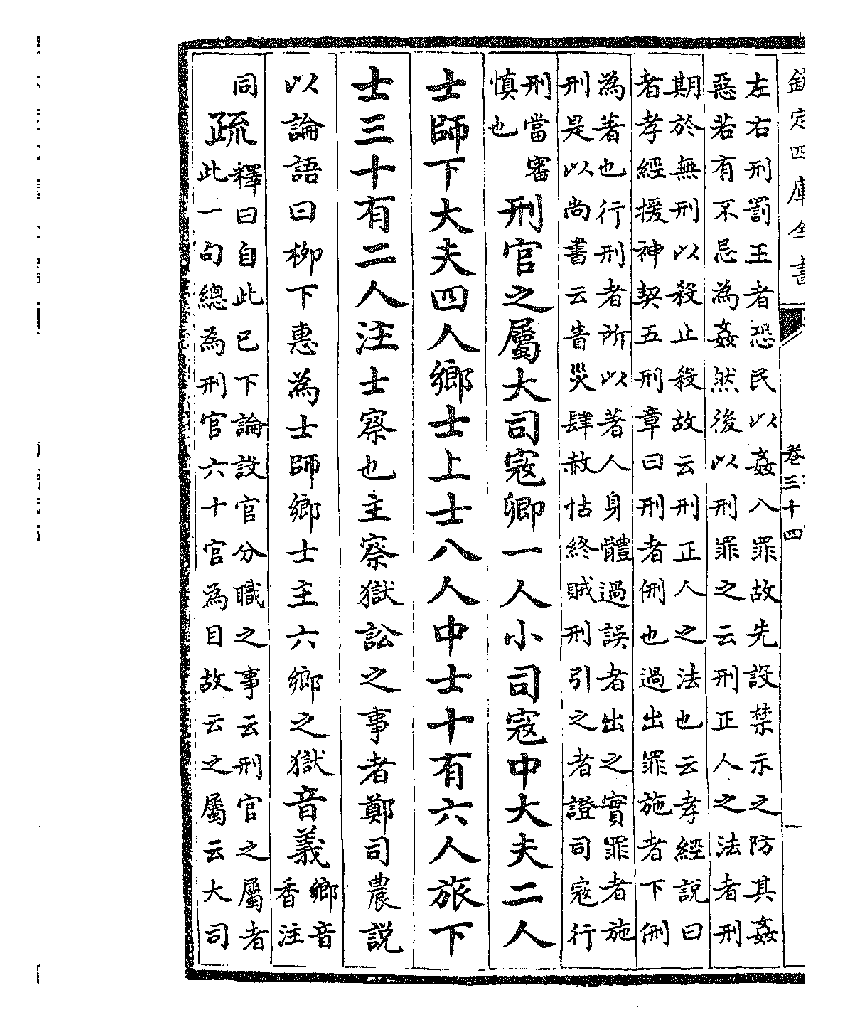 欽定四庫全書
卷三十四
一
左右刑罰王者恐民以姦入罪故先設禁示之防其姦
惡若有不忌為姦然後以刑罪之云刑正人之法者刑
期於無刑以殺止殺故云刑正人之法也云孝經説曰
者孝經援神契五刑章曰刑者侀也過出罪施者下侀
為著也行刑者所以著人身體過誤者出之實罪者施
刑是以尚書云眚災肆赦怙終賊刑引之者證司寇行
刑當審
慎也
刑官之屬大司寇卿一人小司寇中大夫二人
士師下大夫四人鄉士上士八人中士十有六人旅下
士三十有二人注士察也主察獄訟之事者鄭司農説
以論語曰柳下惠為士師鄉士主六鄉之獄音義鄉音
香注
同疏釋曰自此已下論設官分職之事云刑官之屬者
此一句總為刑官六十官為目故云之屬云大司